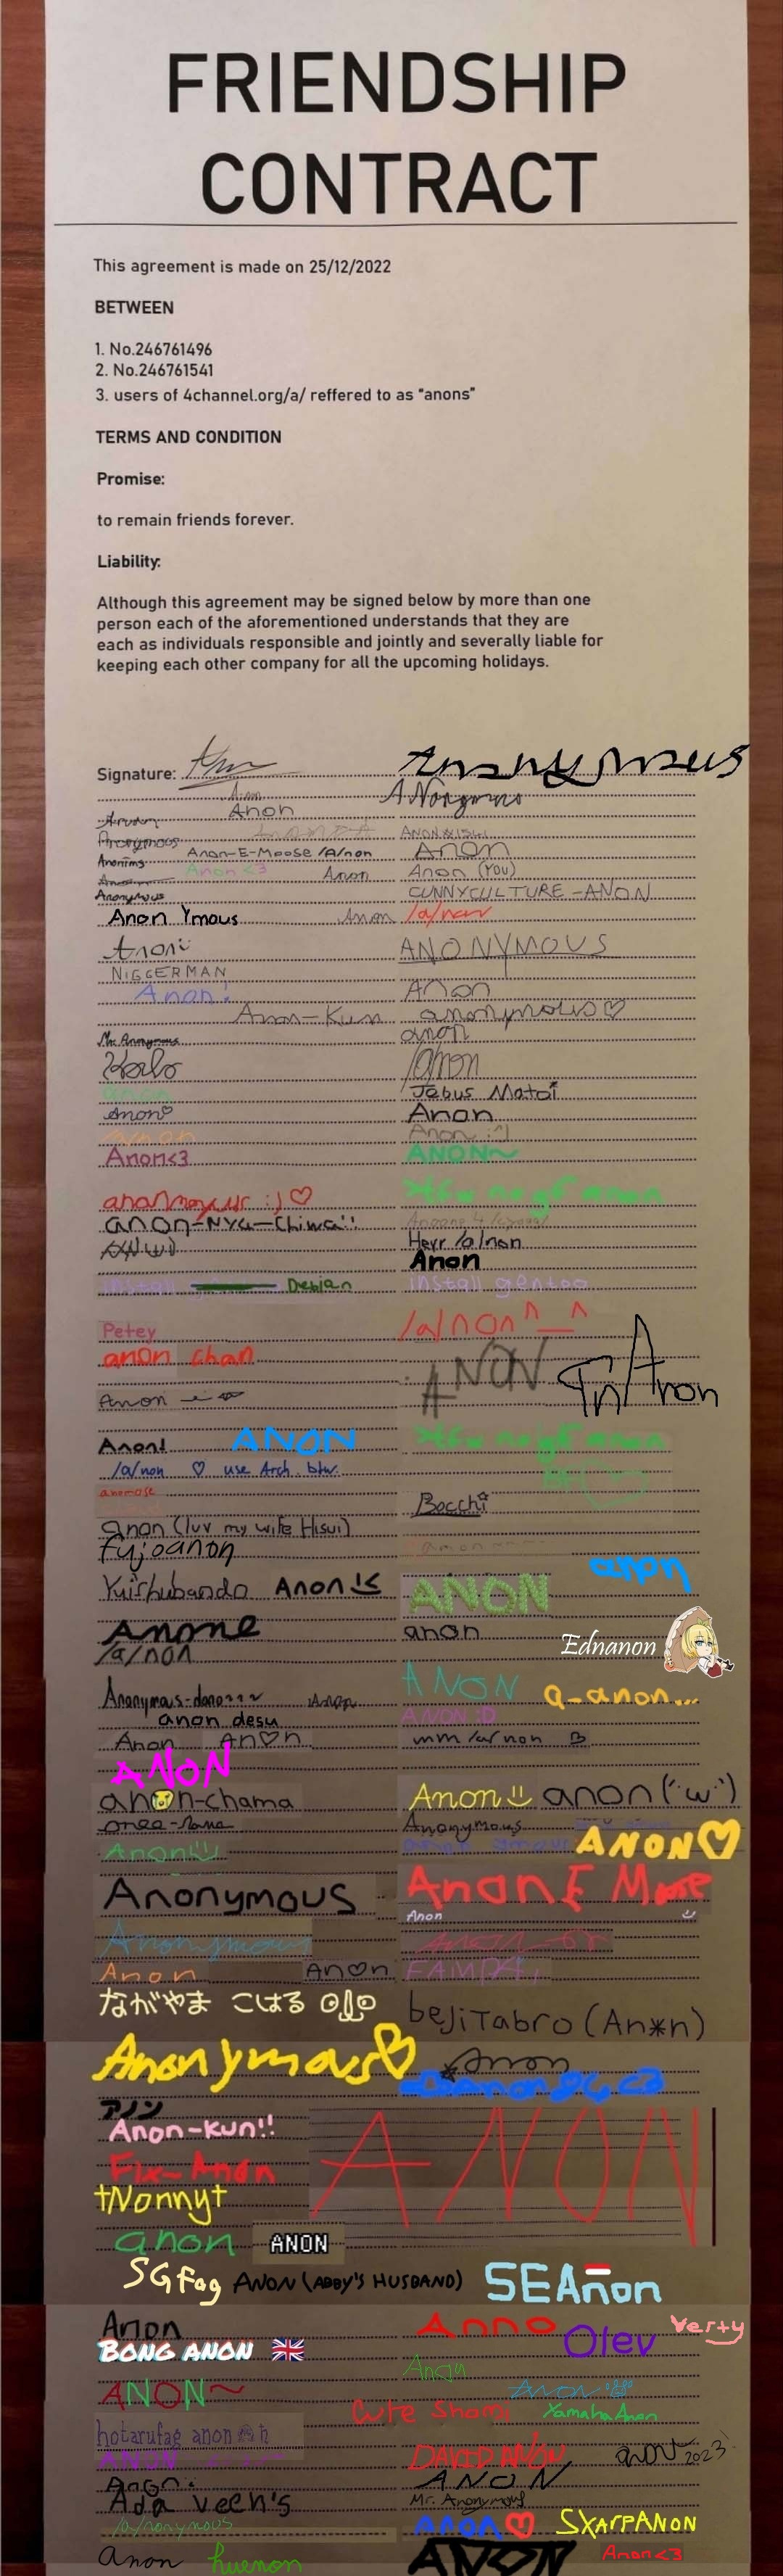 FRIENDSHIP
CONTRACT
This agreement is made on 25/12/2022
BETWEEN
1. No.246761496
2. No.246761541
3. users of 4channel.org/a/ reffered to as “anons”
TERMS AND CONDITION
Promise:
to remain friends forever.
Liability:
Although this agreement may be signed below by more than one
person each of the aforementioned understands that they are
each as individuals responsible and jointly and severally liable for
keeping each other company for all the upcoming holidays.
Signature:
Anon
Anonymous
Anon-E-Moose /A/non
Anon
Anonims
Anon <3
Anon
Anon (YOU)
Anonymous
CUNNYCULTURE -ANON
Anon Ymous
Anon
Anon
ANONYMOUS
NIGGERMAN
Anon!
Anon
Anon-Kun
anonymous♡
Mr. Anonymous
anon
/a/non
anon
Jebus Matoi
Anon♡
Anon
a/non
Anon :^)
Anon<3
ANON~
anon-nya-chiwa!!
Herr /a/non
Anon
install
Debian
install gentoo
Petey
/a/non ^_^
anon chan
ANON
Anon
Anon
Anon!
ANON
/a/non ♡ use Arch. btw.
Bocchi
anon (luv my wife Hisui)
fujoanon
anon
Yuishubando
Anon
ANON
Anone
anon
Ednanon
/a/non
ANON
a-anon...
anon desu
ANON :D
Anon
An♡n
ANON
Anon
anon ('ω')
an n-chama
Anonymous
Anon
ANON♡
Anonymous
Anon E Moose
Anon
Anonymous
Anon
An♡n
ながやま こはる
bejiTabro (An*n)
Anonymous♡
Anon
アノン
Anon-Kun!!
ANON
Fix-Anon
†Nonny†
anon
ANON
SGfag
ANON (ABBY'S HUSBAND)
SEAnon
Anon
Anno
Olev
Verty
BONG ANON
ANON~
Anon
Anon
Cute Shami
Yamaha Anon
hotarufag anon
ANON
DAVID ANON
anon 2023
Anon
ANON
Ada Vech's
Mr. Anonymous
/a/nonymous
anon
SXARPANON
anon
huenon
ANON
Anon<3